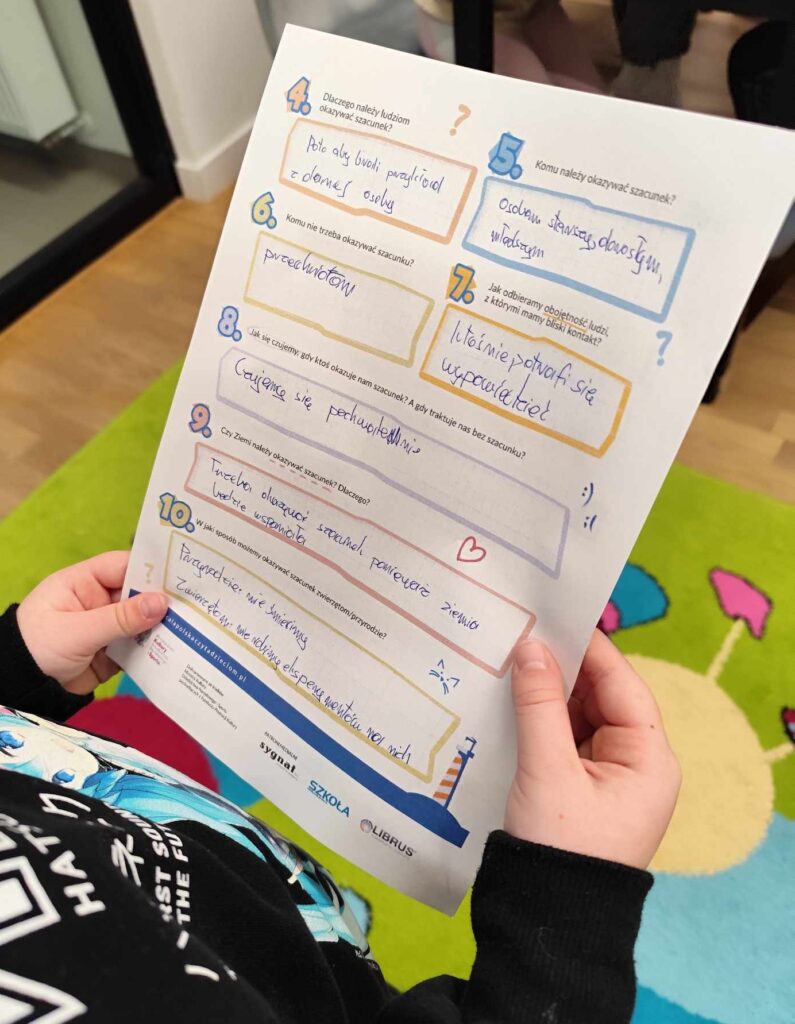 4.
Dlaczego należy ludziom
okazywać szacunek?
?
Poto aby budzi
z osoby
5.
Komu należy okazywać szacunek?
osobom starszy, dorosłym,
młodszym
6.
Komu nie trzeba okazywać szacunku?
7.
Jak odbieramy obojętność ludzi,
z którymi mamy bliski kontakt?
?
ktoś nie potrafi się
wypowiedzieć
8.
Jak się czujemy, gdy ktoś okazuje nam szacunek? A gdy traktuje nas bez szacunku?
Czujemy się
:)
:(
9.
Czy Ziemi należy okazywać szacunek? Dlaczego?
Trzeba okazywać szacunek ponieważ ziemia
będzie wspaniała
10.
W jaki sposób możemy okazywać szacunek zwierzętom/przyrodzie?
?
Przyrodzie: nie śmiecimy
Zwierzętom: nie robimy eksperymentów na nich
alapolskaczytadzieciom.pl
PATRONI MEDIALNI
sygnał
SZKOŁA
LIBRUS
HAT
RST SOUN
THE FU